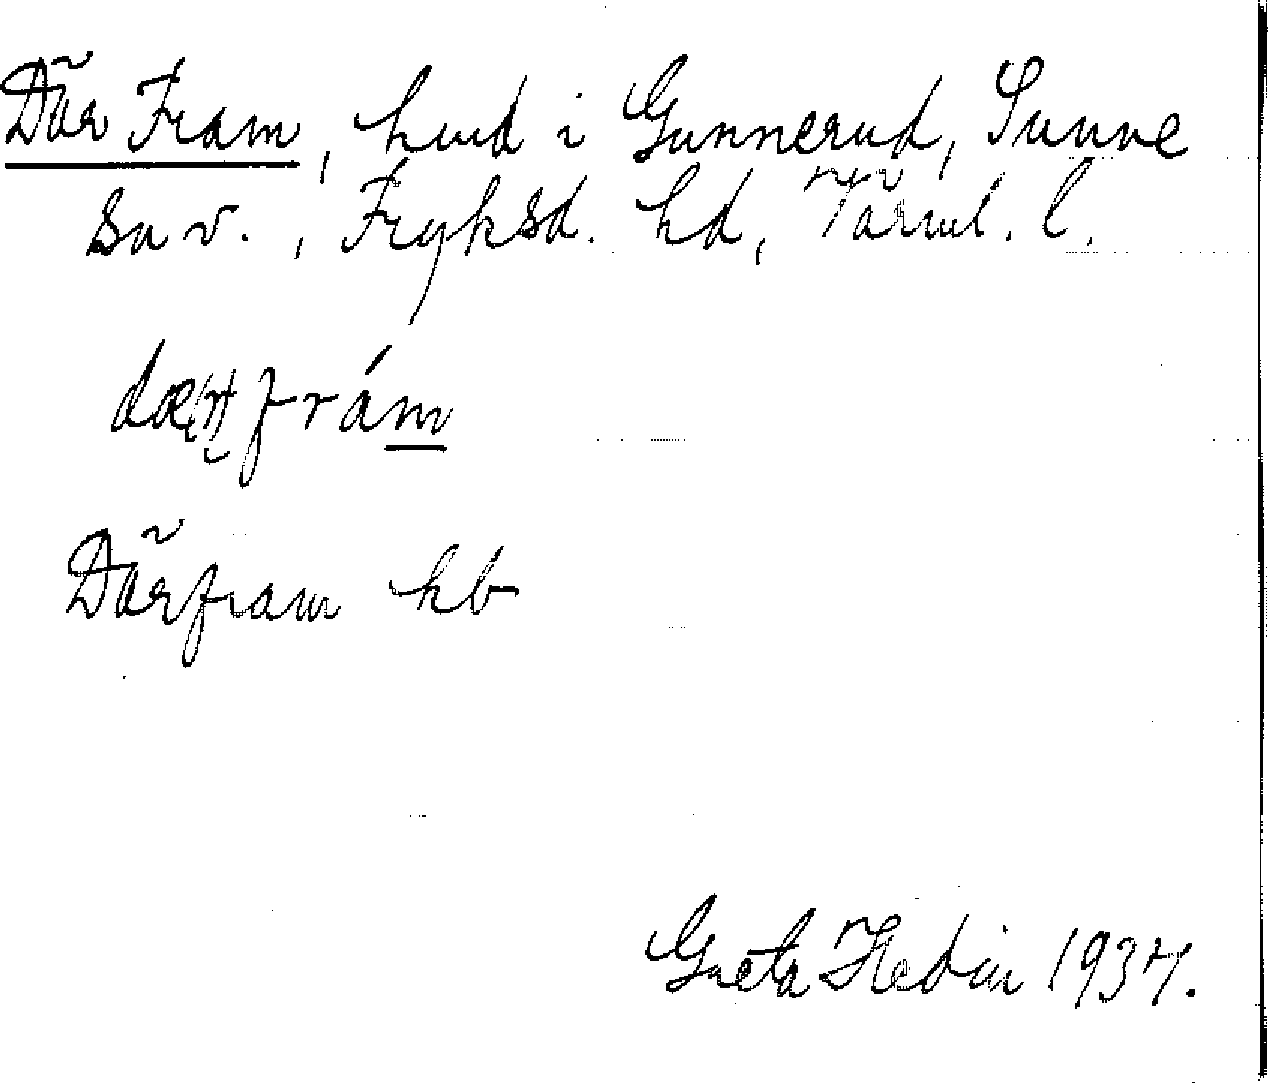 Där Fram, hmd i Gunnerud, Sunne
sn v., Fryksd. hd, Värml. l.
frám
Därfram kb
Greta Hedin 1937.